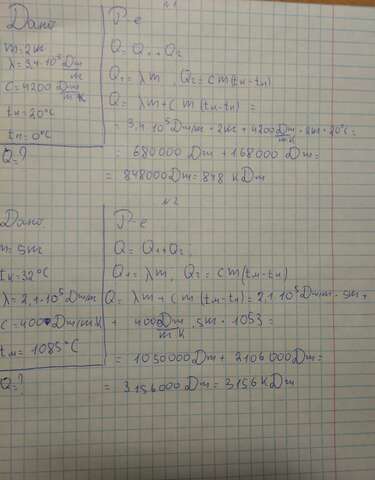 №1
Дано
m=2кг
λ=3,4·10⁵ Дж/кг
C=4200 Дж/кг К
tк=20°C
tн=0°C
Q=?
Р-е
Q=Q₁+Q₂
Q₁=λm, Q₂=cm(tк-tн)
Q=λm+cm(tк-tн)=
=3,4·10⁵Дж/кг·2кг+4200Дж/кгК·2кг·20°C=
=680000Дж+168000Дж=
=848000Дж=848кДж
№2
Дано
m=5кг
tн=32°C
λ=2,1·10⁵Дж/кг
C=400Дж/кгК
tк=1085°C
Q=?
Р-е
Q=Q₁+Q₂
Q₁=λm, Q₂=cm(tк-tн)
Q=λm+cm(tк-tн)=2,1·10⁵Дж/кг·5кг+
+400Дж/кгК·5кг·1053=
=1050000Дж+2106000Дж=
=3156000Дж=3156кДж